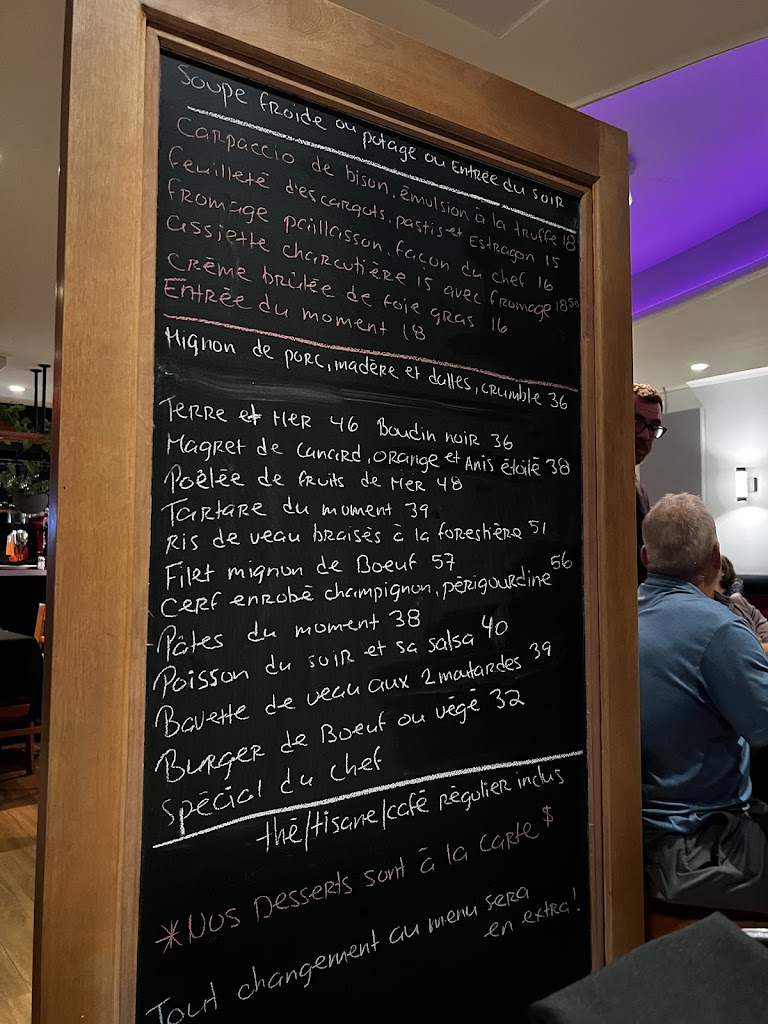 Soupe froide ou potage ou Entrée du soir
Carpaccio de bison, émulsion à la truffe 18
feuilleté d'escargots, pastis et Estragon 15
fromage paillasson, façon du chef 16
assiette charcutière 15 avec fromage 18 50
Crème brûlée de foie gras 16
Entrée du moment 18
Mignon de porc, madère et dattes, crumble 36
Terre et Mer 46 Boudin noir 36
Magret de canard, orange et Anis étoilé 38
Poêlée de fruits de Mer 48
Tartare du moment 39
Ris de veau braisés à la forestière 51
Filet mignon de Boeuf 57
Cerf enrobé champignon, périgourdine 56
Pâtes du moment 38
Poisson du soir et sa salsa 40
Bavette de veau aux 2 moutardes 39
Burger de Boeuf ou végé 32
Spécial du chef
thé/tisane/café régulier inclus
*Nos Desserts sont à la carte $
Tout changement au menu sera
en extra!